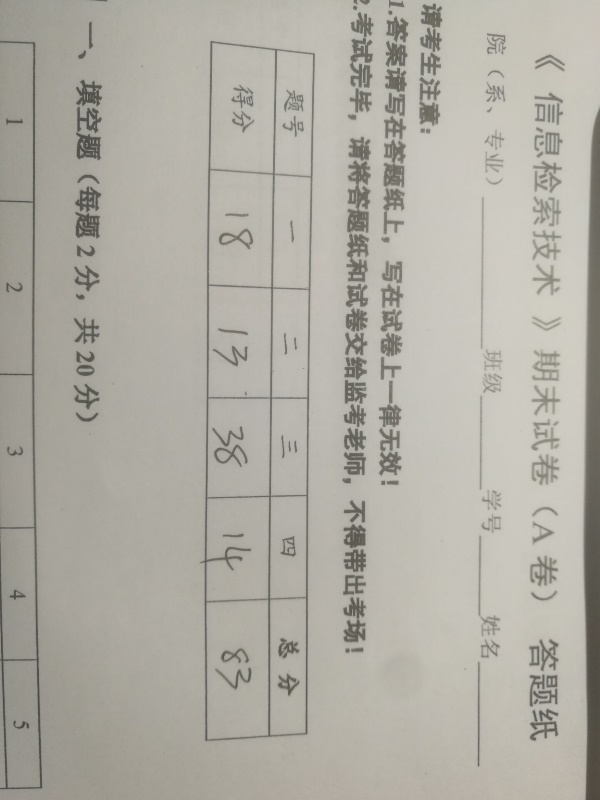 《 信息检索技术 》期末试卷（A 卷） 答题纸
院（系、专业）________班级______学号_____姓名______
请考生注意：
1.答案请写在答题纸上，写在试卷上一律无效！
2.考试完毕，请将答题纸和试卷交给监考老师，不得带出考场！
题号 一 二 三 四 总 分
得分 18 13 38 14 83
一、 填空题（每题 2 分，共 20 分）
1 2 3 4 5